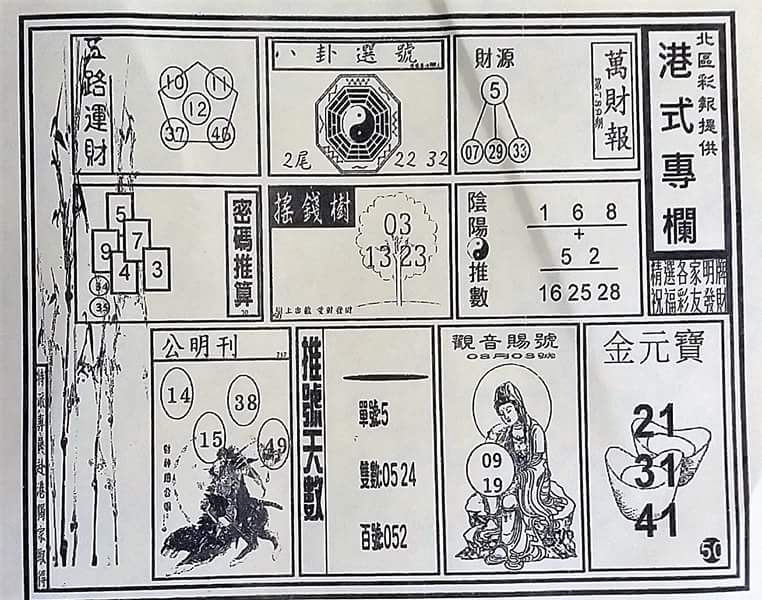 北區彩報提供
港式專欄
精選各家明牌
祝福彩友發財
萬財報
財源
5
07 29 33
八卦選號
2尾
22 32
五路運財
10 11
12
37
陰陽
推數
1 6 8
+
5 2
16 25 28
搖錢樹
03
13 23
密碼推算
5
7
9
4 3
金元寶
21
31
41
50
觀音賜號
09
19
推號天數
單號:5
雙數:05 24
百號:052
公明刊
14
38
15
49